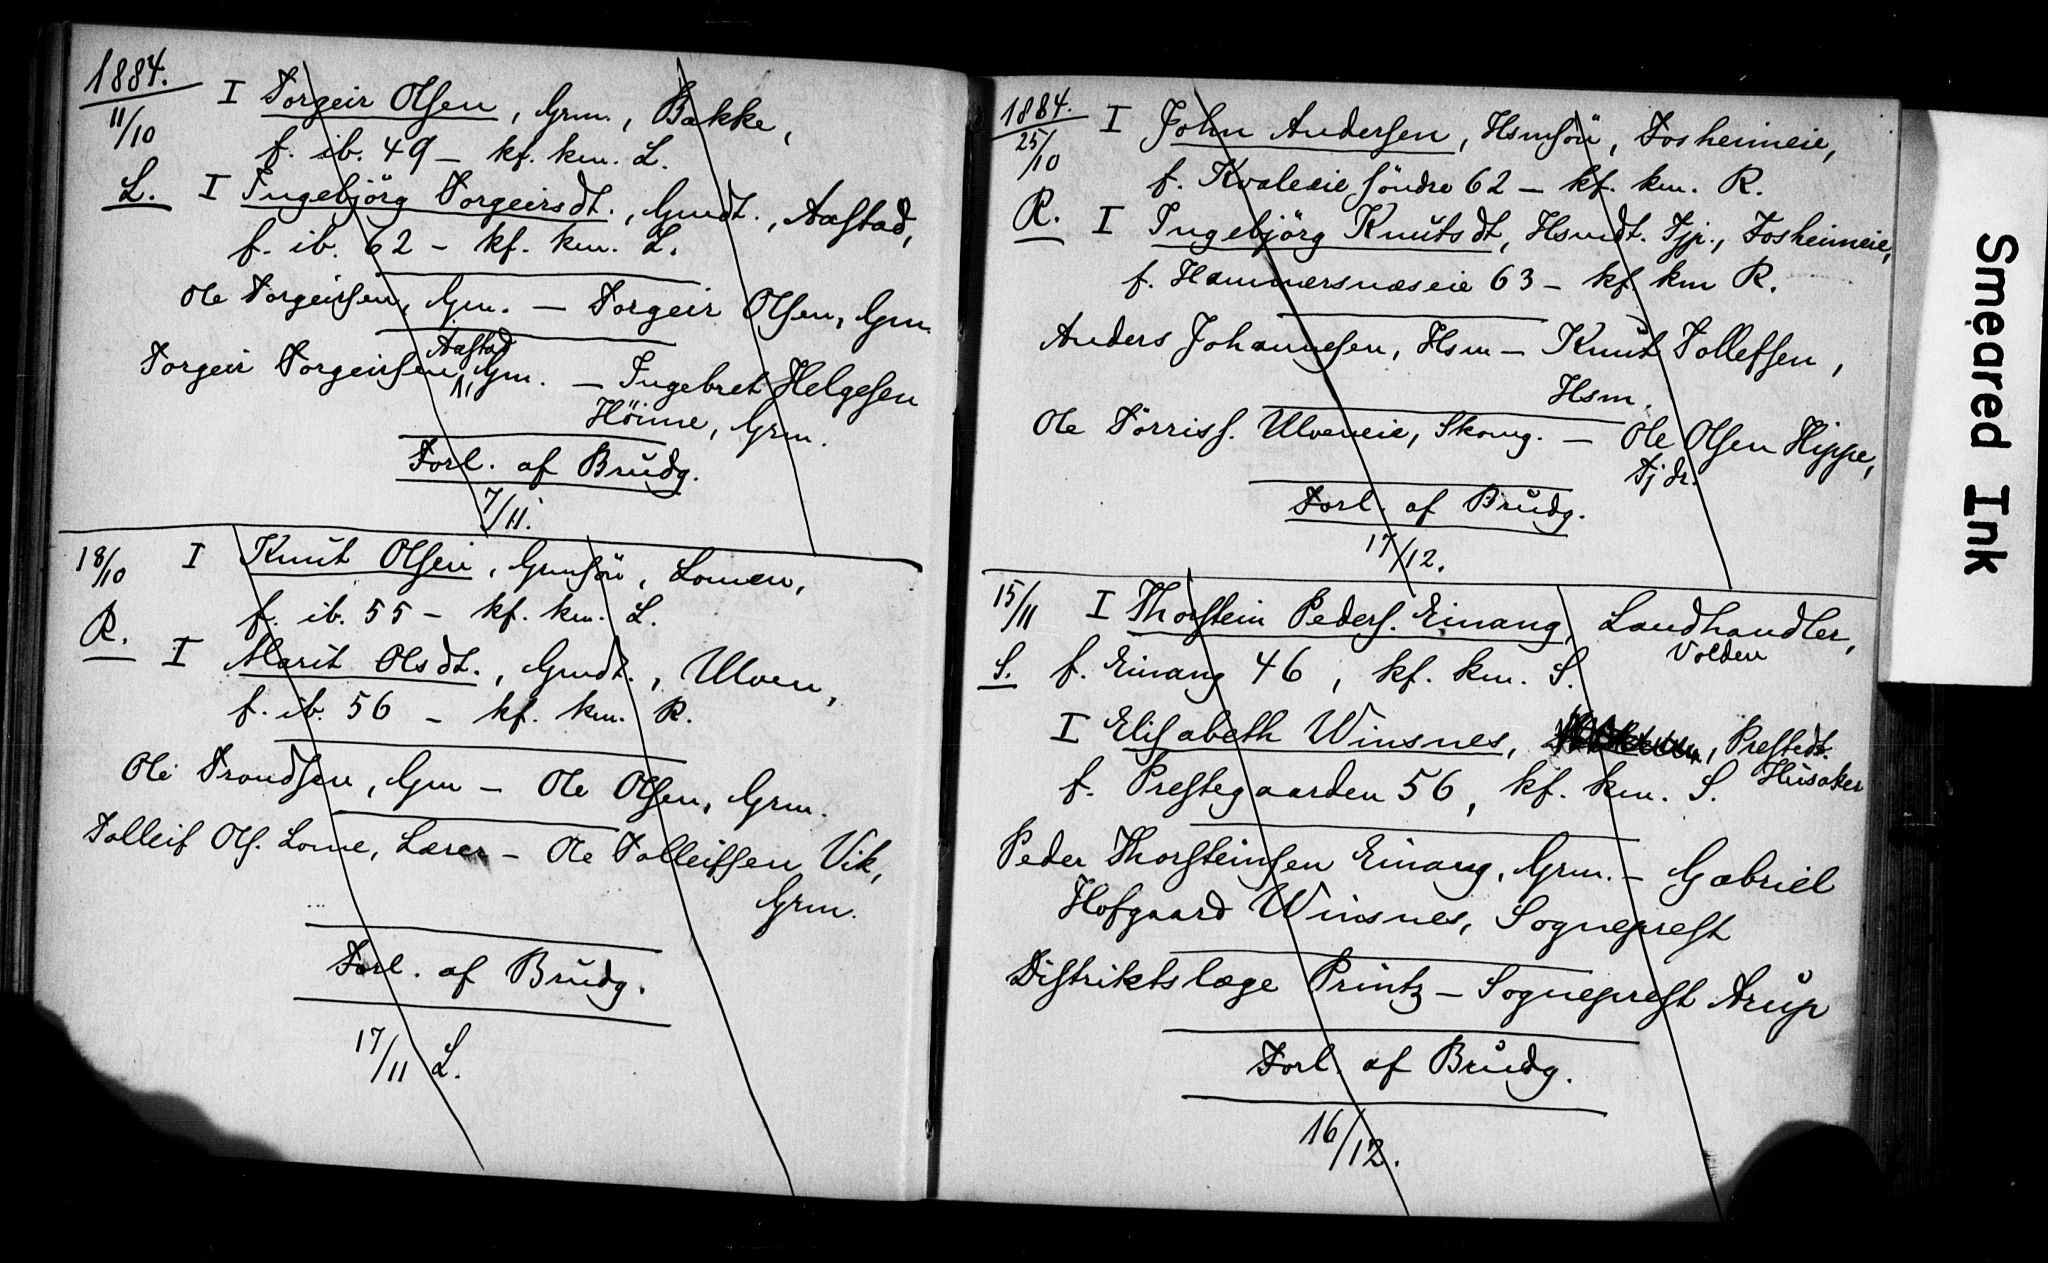 1884.
11/10 I Torgeir Olsen, Grm., Bakke,
f. ib. 49 – kf. km. L.
L. I Ingebjörg Torgeirsdt., Gmdt., Aastad,
f. ib. 62 – kf. km. L.
Ole Torgeirsen, Gm. – Torgeir Olsen, Gm.
Aastad
Torgeir Torgeirsen, Gm. – Ingebret Helgesen
Höinne, Grm.
Forl. af Brudg.
7/11.
18/10 I Knut Olsen, Gmsön, Lomen,
f. ib. 55 – kf. km. L.
R. I Marit Olsdt., Gmdt., Ulven,
f. ib. 56 – kf. km. R.
Ole Trondsen, Gm – Ole Olsen, Grm.
Tolleif Ols. Lome, Lærer – Ole Tolleifsen Vik,
Grm.
Forl. af Brudg.
17/11 L.
1884.
25/10 I John Andersen, Hsmsön, Fosheimeie,
f. Kvaleeie söndre 62 – kf. km. R.
R. I Ingebjörg Knutsdt, Hsmdt. Tjp., Fosheimeie,
f. Hammersnæseie 63 – kf. km R.
Anders Johannesen, Hsm – Knut Tollefsen,
Hsm.
Ole Törriss. Ulveneie, Skomg. – Ole Olsen Hippe,
Tjdr.
Forl. af Brudg.
17/12.
15/11 I Thorstein Peders. Einang, Landhandler,
Volden
S. f. Einang 46, kf. km. S.
I Elisabeth Winsnes, Prestedt.
Husaker
f. Prestegaarden 56, kf. km. S.
Peder Thorsteinsen Einang, Grm. – Gabriel
Hofgaard Winsnes, Sogneprest
Distriktslæge Printz – Sogneprest Arup
Forl. af Brudg.
16/12.
Smeared Ink